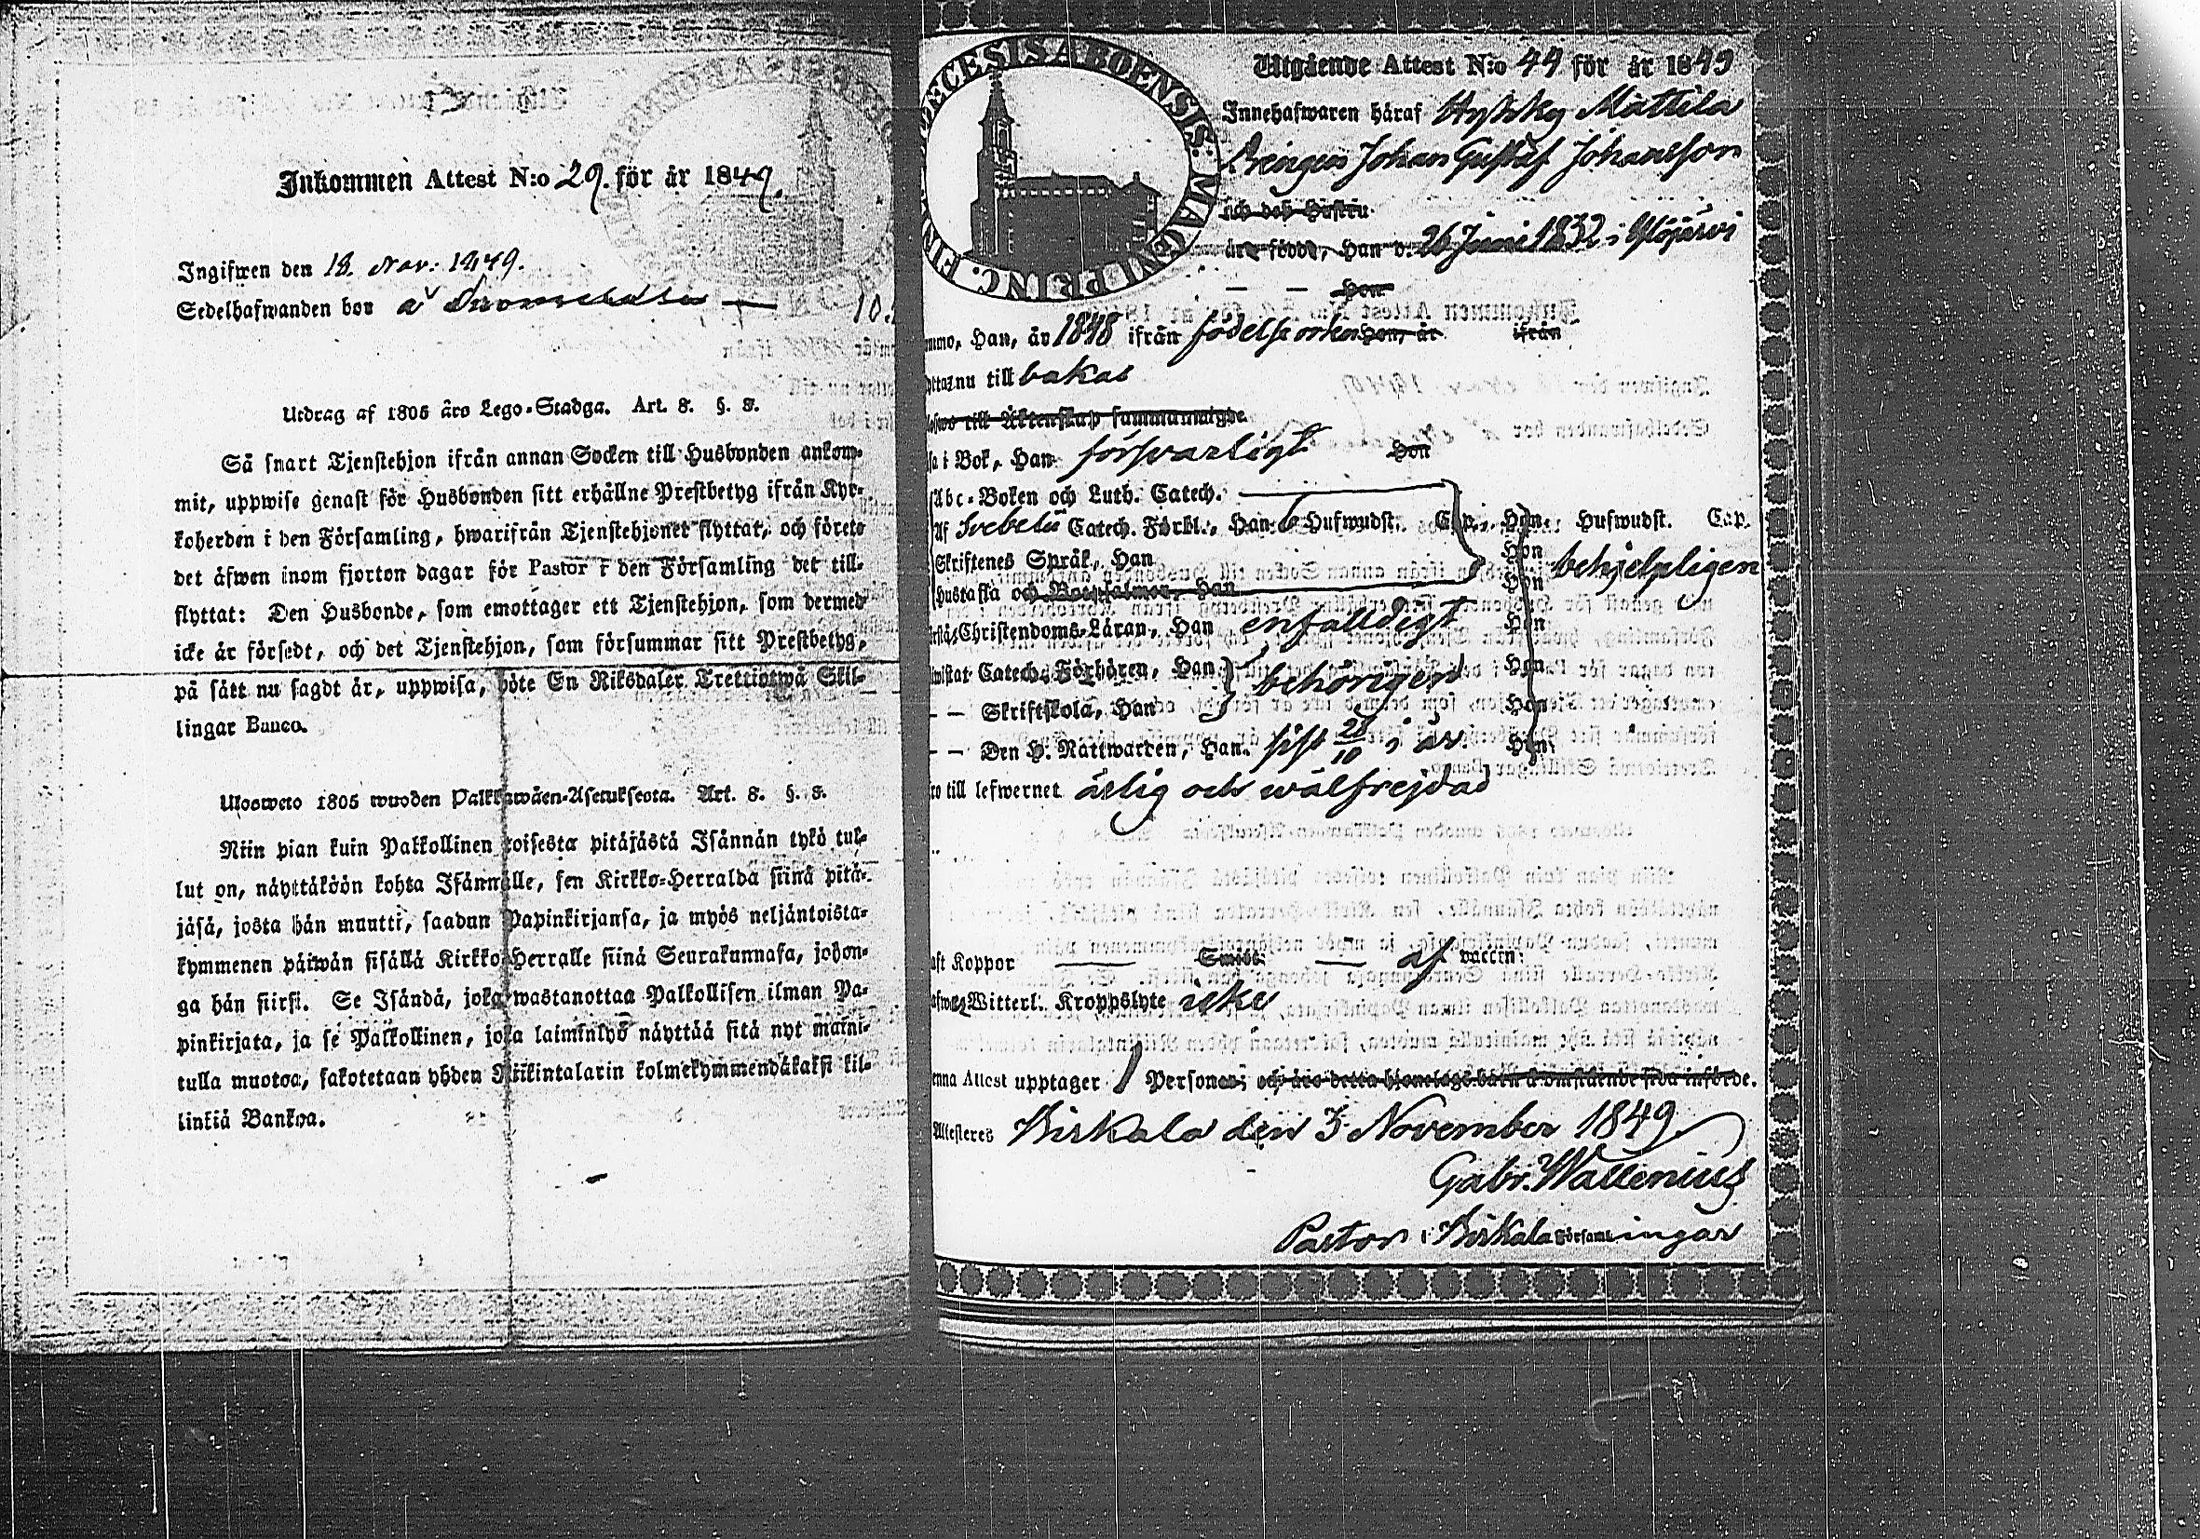 Inkommen Attest N:o 29. för år 1849.
Ingifwen den 18. Nov: 1849.
Sedelhafwanden bor å
10.
Utdrag af 1805 års Lego-Stadga. Art. 8. §. 8.
Så snart Tjenstehjon ifrån annan Socken till Husbonden ankom-
mit, uppwise genast för Husbonden sitt erhållne Prestbetyg ifrån Kyr-
koherden i den Församling, hwarifrån Tjenstehjonet flyttat, och förete
det äfwen inom fjorton dagar för Pastor i den Församling det till-
flyttat: Den Husbonde, som emottager ett Tjenstehjon, som dermed
icke är försedt, och det Tjenstehjon, som försummar sitt Prestbetyg,
på sätt nu sagdt är, uppwisa, böte En Riksdaler Trettiotwå Skil-
lingar Banco.
Ulosweto 1805 wuoden Palkkawäen-Asetuksesta. Art. 8. §. 8.
Niin pian kuin Palkollinen toisesta pitäjästä Isännän tykö tul-
lut on, näyttäköön kohta Isännälle, sen Kirkko-Herralda siinä pitä-
jäsä, josta hän muutti, saadun Papinkirjansa, ja myös neljäntoista-
kymmenen päiwän sisällä Kirkko-Herralle siinä Seurakunnasa, johon-
ga hän siirsi. Se Isändä, joka wastanottaa Palkollisen ilman Pa-
pinkirjata, ja se Palkollinen, joka laiminlyö näyttää sitä nyt maini-
tulla muotoa, sakotetaan yhden Riikintalarin kolmekymmendäkaksi kil-
linkiä Bankoa.
DIOECESIS ABOENSIS. MAGNI PRINC. FIN
Utgående Attest N:o 44 för år 1849
Innehafwaren häraf Hyhky Mattila
Drängen Johan Gustaf Johansson
och dess Hustru
äro födde, Han d. 26 Juni 1832 i Ylöjärvi
— — Hon
ommo, Han, år 1848 ifrån födelseorten Hon, år ifrån
yttar nu till bakas
till Äktenskap sammanwigde
sa i Bok, Han försvarligt Hon
Abc-Boken och Luth. Catech.
Af Svebelii Catech. Förkl., Han 6 Hufwudst. Cap., Hon, Hufwudst. Cap.
Skriftenes Språk, Han Hon behjelpligen
Hustafla och Botpsalmer, Han Hon
Christendoms-Läran, Han enfalldigt Hon
wistat Catech. Förhören, Han behörigen Hon
— — Skriftskola, Han Hon
— — Den H. Nattwarden, Han sist 28/10 i år. Hon
ro till lefwernet ärlig och wälfrejdad
aft Koppor — Smitt. — af vaccin:
Witterl. Kroppslyte icke
enna Attest upptager 1 Personer; och äro detta hjonelags barn å omstående sida införde.
Attesteres Birkala den 3 November 1849
Gabr. Wallenius
Pastor i Birkala Församlingar